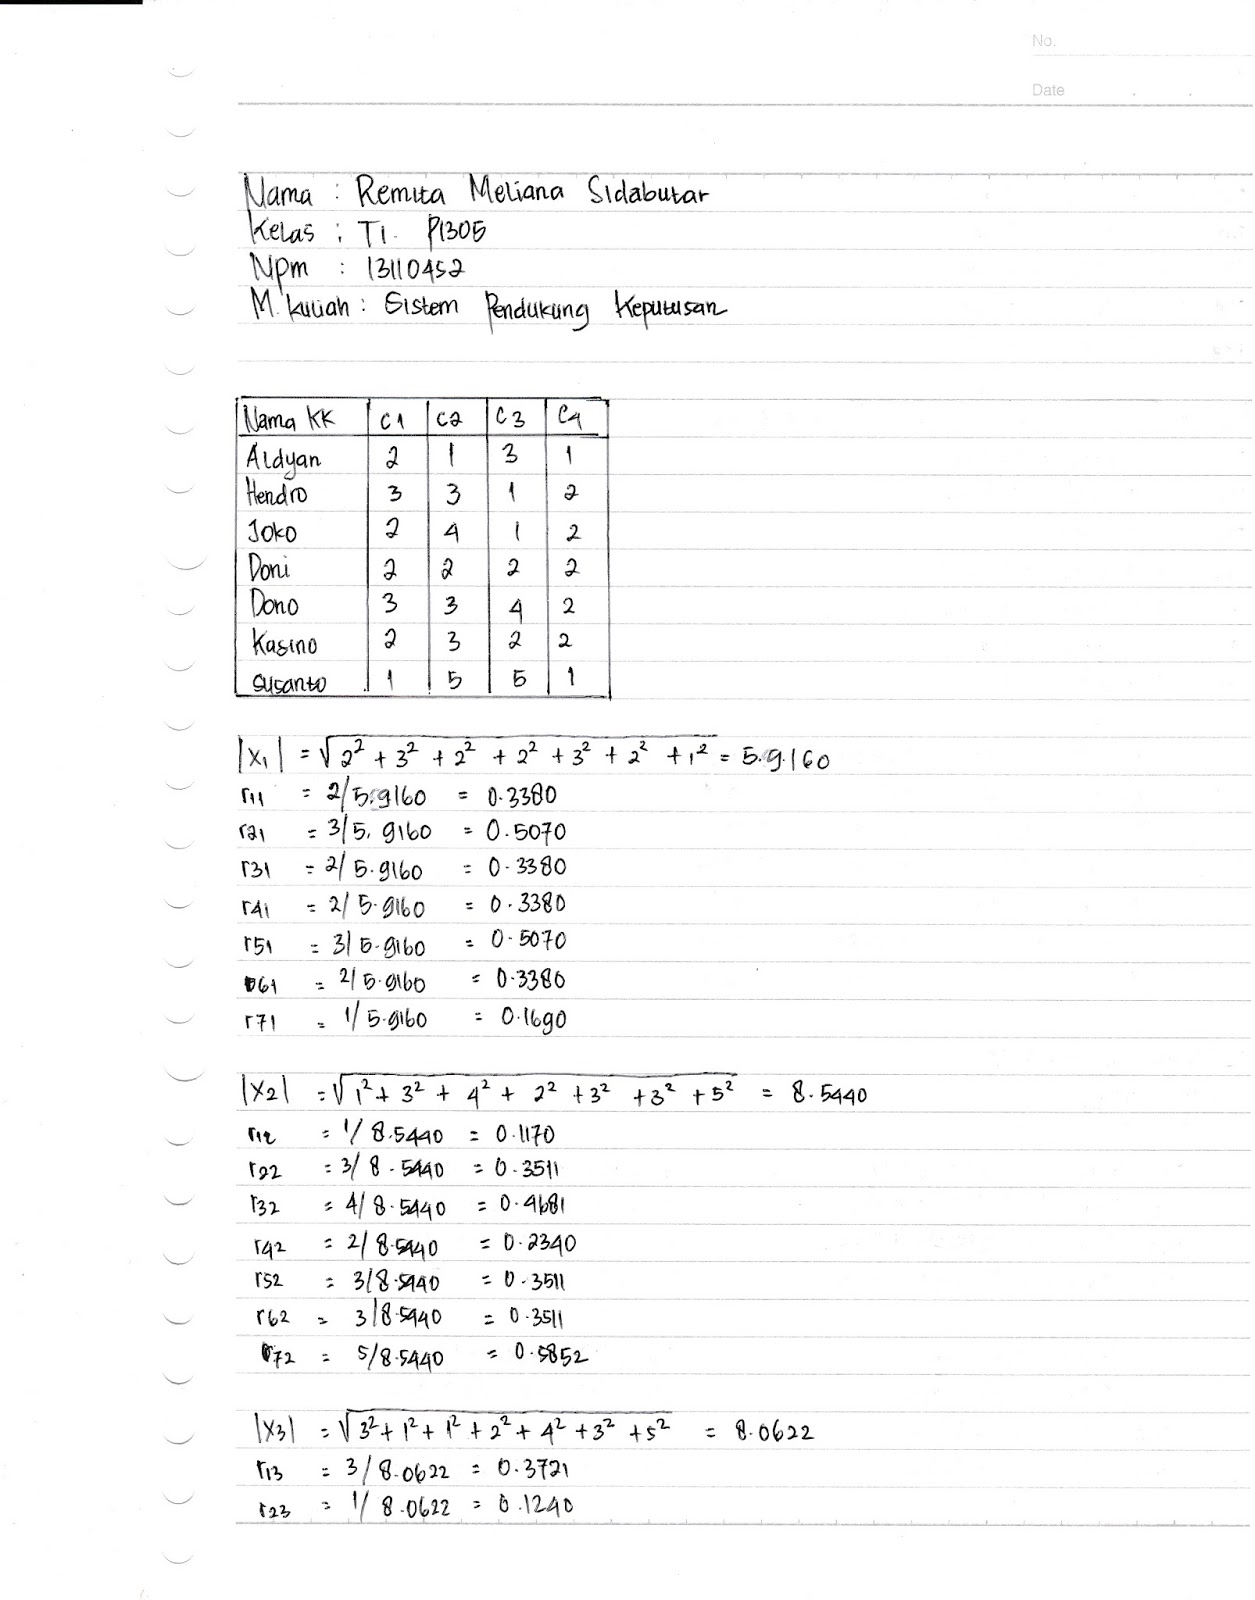 No.
Date
Nama : Remita Meliana Sidabutar
Kelas : TI. P1305
Npm : 13110452
M. kuliah : Sistem Pendukung Keputusan
Nama KK C1 C2 C3 C4
Aldyan 2 1 3 1
Hendro 3 3 1 2
Joko 2 4 1 2
Doni 2 2 2 2
Dono 3 3 4 2
Kasino 2 3 2 2
Susanto 1 5 5 1
|X₁| = √2² + 3² + 2² + 2² + 3² + 2² + 1² = 5.9.160
r11 = 2/5.9160 = 0.3380
r21 = 3/5.9160 = 0.5070
r31 = 2/5.9160 = 0.3380
r41 = 2/5.9160 = 0.3380
r51 = 3/5.9160 = 0.5070
r61 = 2/5.9160 = 0.3380
r71 = 1/5.9160 = 0.1690
|X2| = √1² + 3² + 4² + 2² + 3² + 3² + 5² = 8.5440
r12 = 1/8.5440 = 0.1170
r22 = 3/8.5440 = 0.3511
r32 = 4/8.5440 = 0.4681
r42 = 2/8.5440 = 0.2340
r52 = 3/8.5440 = 0.3511
r62 = 3/8.5440 = 0.3511
r72 = 5/8.5440 = 0.5852
|X3| = √3² + 1² + 1² + 2² + 4² + 3² + 5² = 8.0622
r13 = 3/8.0622 = 0.3721
r23 = 1/8.0622 = 0.1240